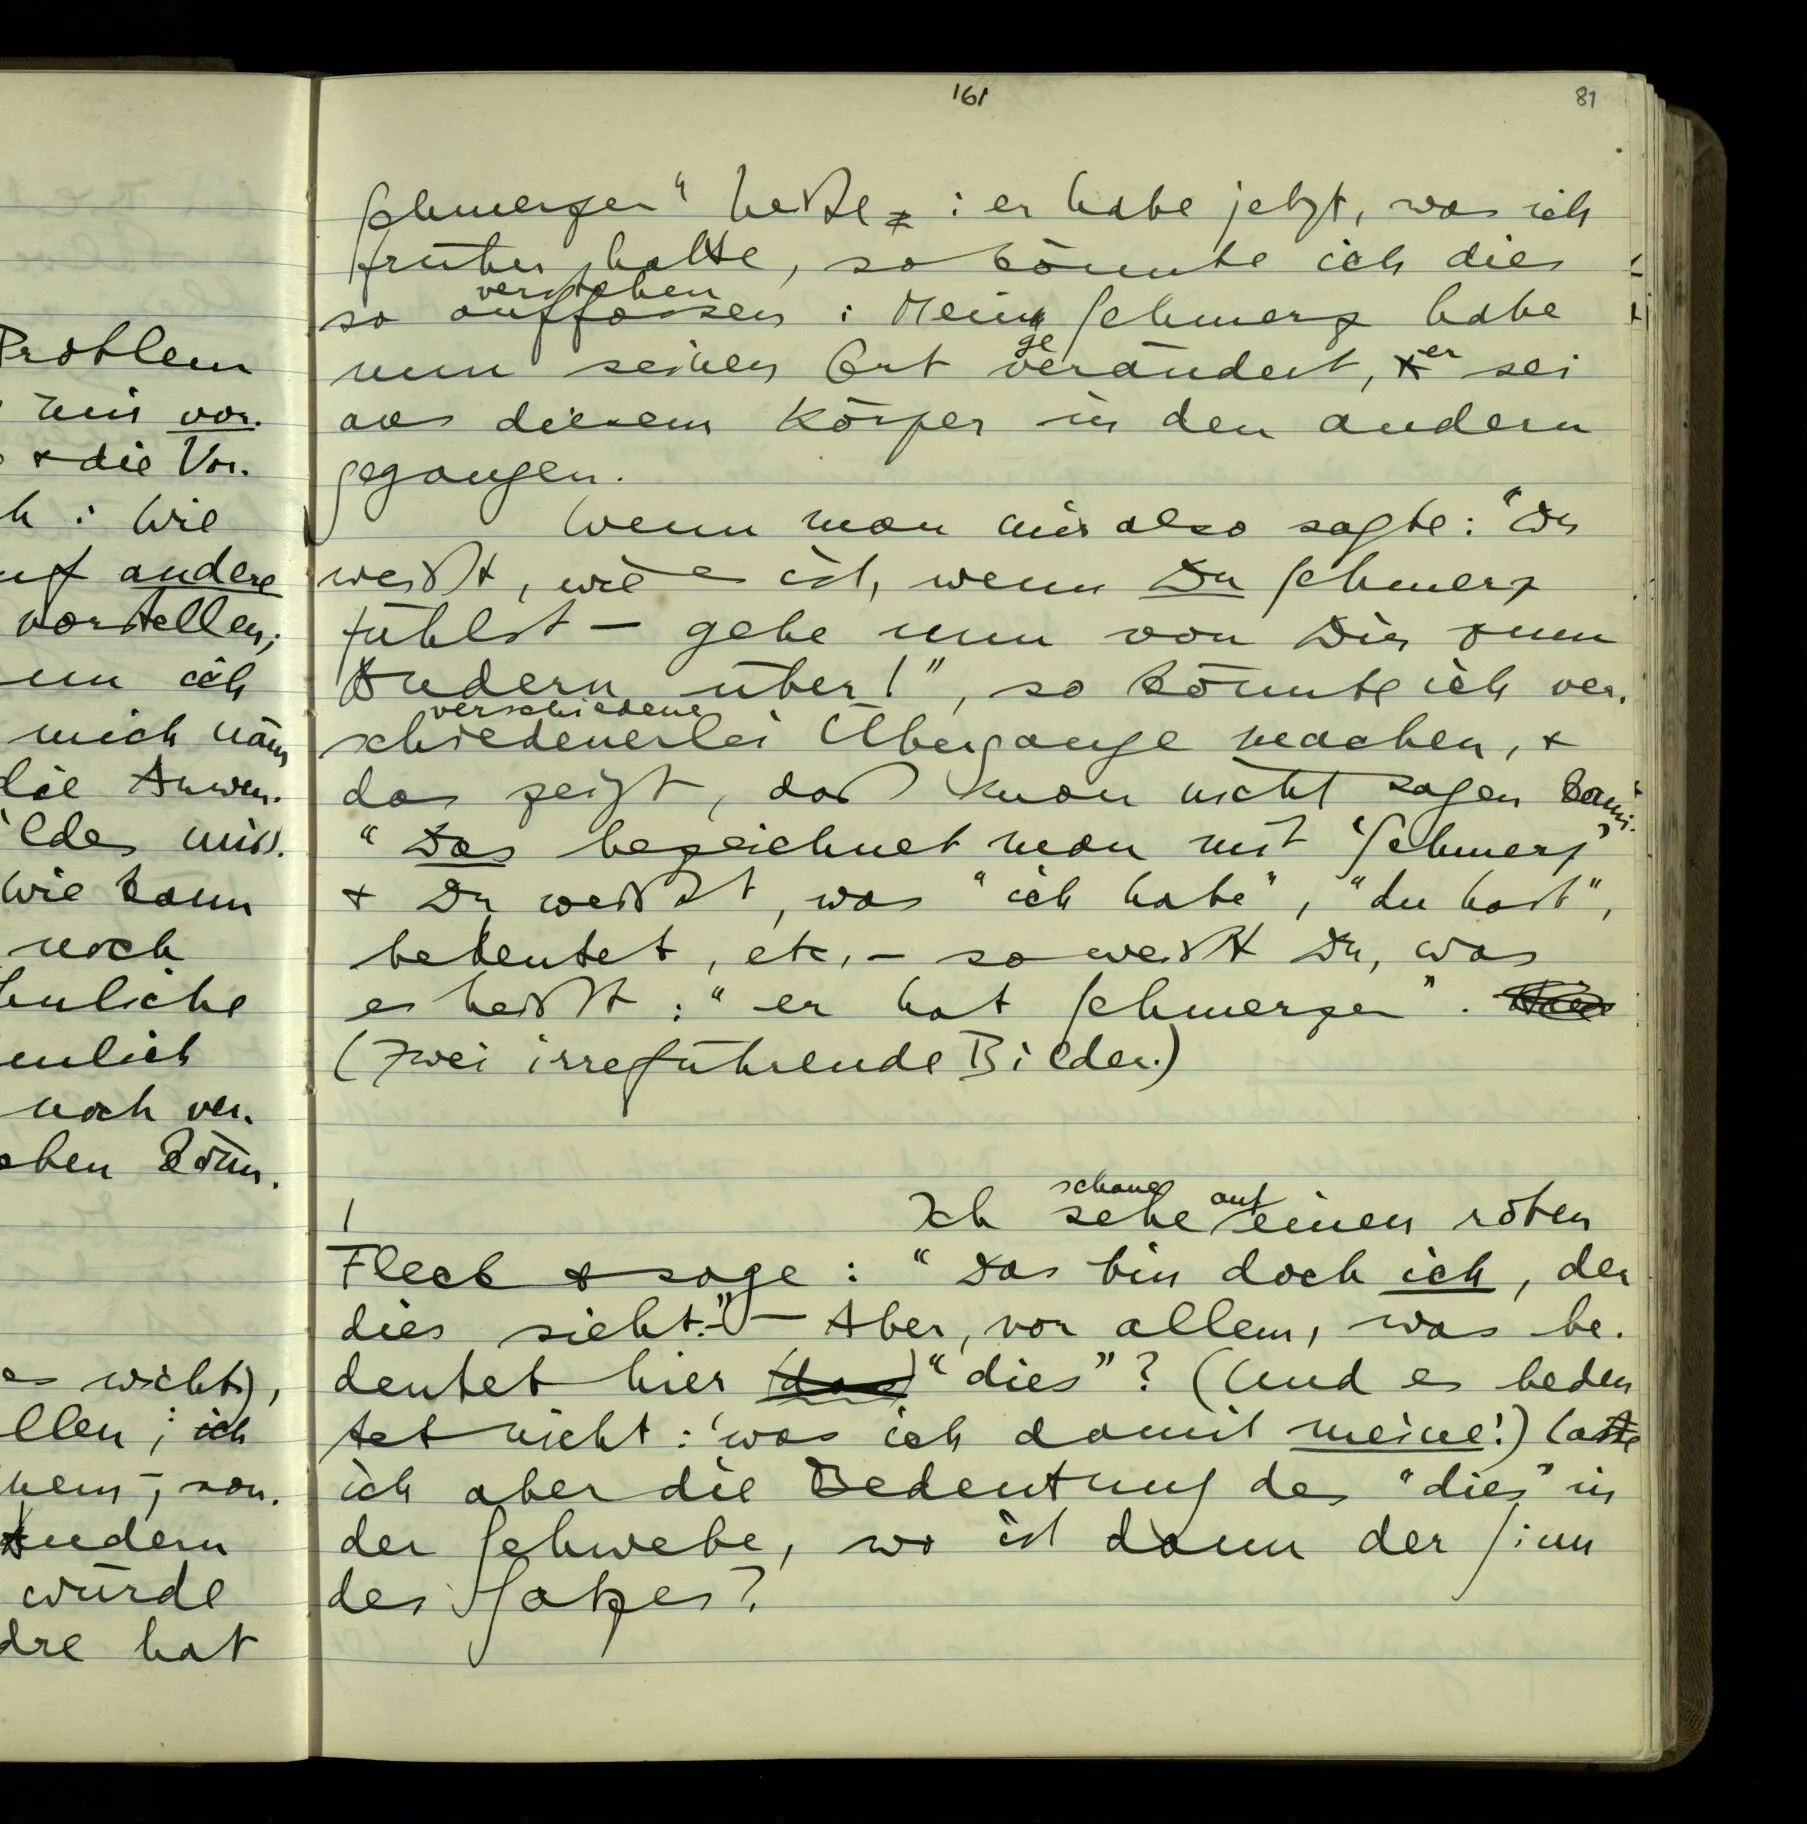 Problem
mir vor.
+ die Vor.
h : Wie
auf andere
vorstellen,
ich
mich näm
die Anwen.
ildes miss.
Wie kann
noch
hnliche
mlich
noch ver.
chen könn.
es nicht),
llen; ich
nem -, son.
Andern
würde
dre hat
161
81
Schmerzen" heiße : er habe jetzt, was ich
früher hatte, so könnte ich dies
verstehen
so auffassen : Mein Schmerz habe
ge er
nun seinen Ort verändert, sei
aus diesem Körper in den andern
gegangen.
Wenn man mir also sagte: "Du
weißt, wie es ist, wenn Du Schmerz
fühlst – gehe nun von Dir zum
Andern über!", so könnte ich ver.
verschiedene
schiedenerlei Übergange machen, +
das zeigt, daß man nicht sagen kann:
"Das bezeichnet man mit 'Schmerz'
+ Du weißt, was "ich habe", "du hast",
bedeutet, etc. – so weißt Du, was
es heißt : "er hat Schmerzen".
(Zwei irreführende Bilder.)
schaue auf
/ Ich sehe einen roten
Fleck + sage : "Das bin doch ich, der
dies sieht." – Aber, vor allem, was be.
deutet hier das "dies"? (Und es bedeu
tet nicht: 'was ich damit meine'!) Lasse
ich aber die Bedeutung des "dies" in
der Schwebe, wo ist dann der Sinn
des Satzes?